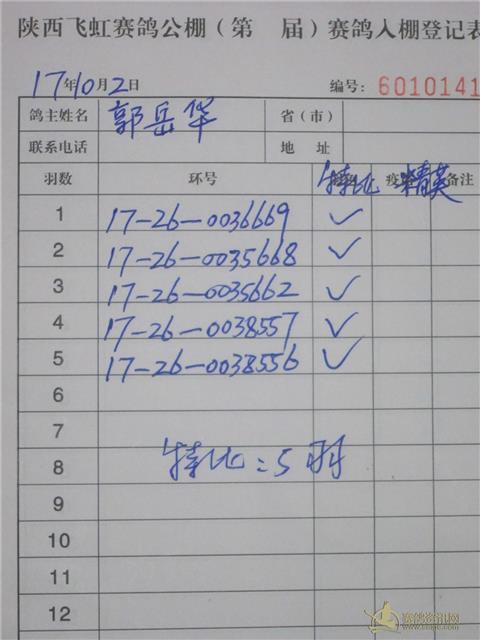 陕西飞虹赛鸽公棚(第 届)赛鸽入棚登记表
17年10月2日 编号:6010141
鸽主姓名 郭岳华 省(市)
联系电话 地 址
羽数 环号 特比 疫 精英 备注
1 17-26-0036669 ✓
2 17-26-0035668 ✓
3 17-26-0035662 ✓
4 17-26-0038557 ✓
5 17-26-0038556 ✓
6
7
8 特比:5羽
9
10
11
12
赛鸽资讯网